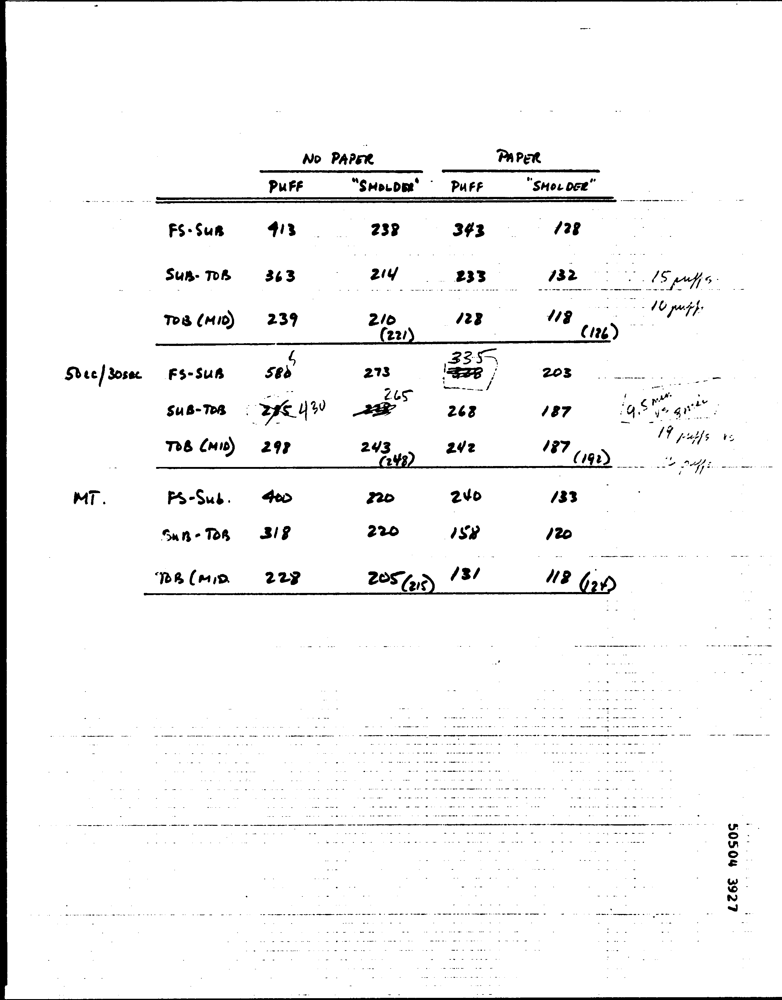 NO PAPER PAPER
PUFF "SMOLDER" PUFF "SMOLDER"
FS-SUB 413 238 343 128
SUB-TOB 363 214 233 132 15 puffs
TOB (MID) 239 210 (221) 128 118 (126) 10 puff.
50cc/30sec FS-SUB 586 273 335 203
SUB-TOB 430 265 268 187 9.5 min vs 8 min
TOB (MID) 298 243 (248) 242 187 (192) 19 puffs vs
puffs
MT. FS-Sub. 400 220 240 133
SUB-TOB 318 220 158 120
TOB (MID 228 205 (215) 131 118 (124)
50504 3927